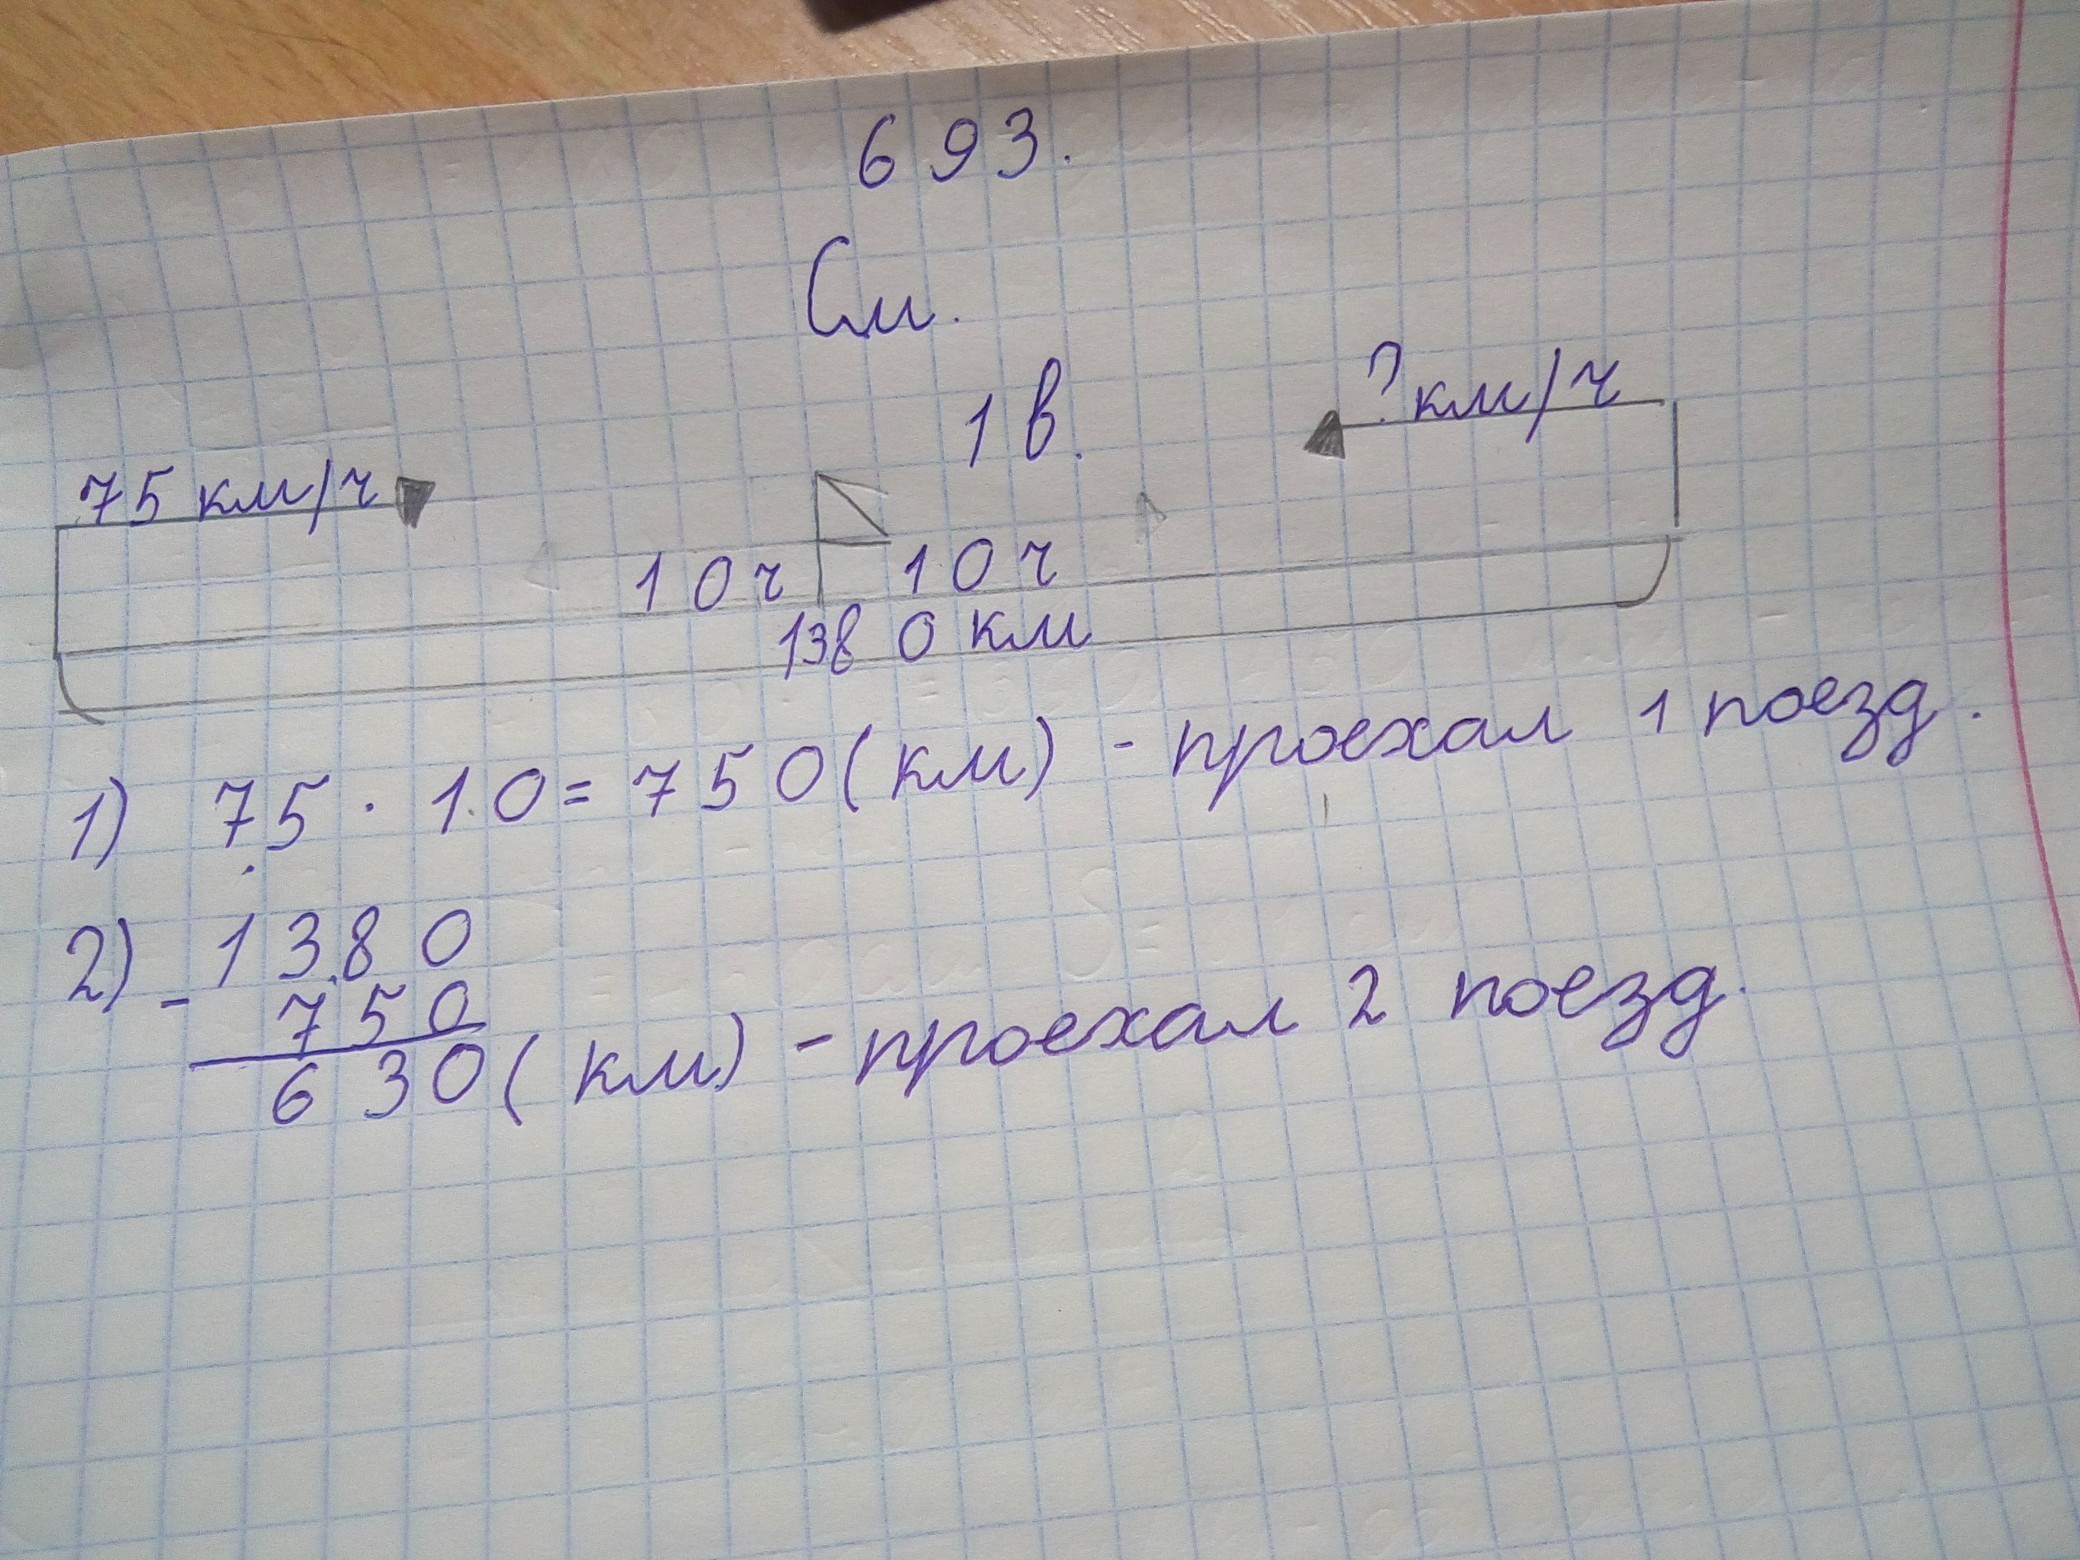 693.
См.
1 в.
75 км/ч
? км/ч
10ч 10ч
1380 км
1) 75 · 10 = 750 (км) - проехал 1 поезд.
2) - 1380
750
630 (км) - проехал 2 поезд.